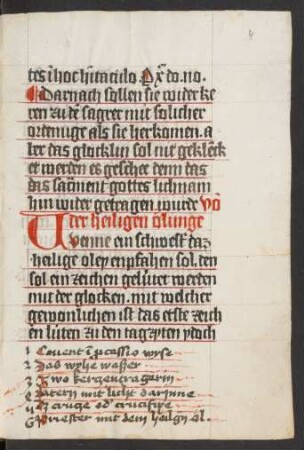 tes ī hoc hītaculo. P xm̄ do. no.
Darnach sollen sie wider ke
ren zu dē sagrer mit solicher
ordenūge als sie herkomen. a
ber das glocklin sol nit geklēckt
et werden es geschee denn das
das sacm̄ent gottes lichnam
hin wider getragen wurde Vō
der heiligen ölunge
Wenne ein schwest' daz
heilige oley enpfahen sol. den
sol ein zeichen gelütet werden
mit der glocken. mit welicher
gewonlichen ist das erste zeich
en lüten zu den tagzyten ydoch
1 Couent ī pcassio wyse
2 Das wyhe wasser
3 Zwo kergentragerin
mit licht darinne
cruce od' crucifixe
6 Priester mit dem heilgē öl.